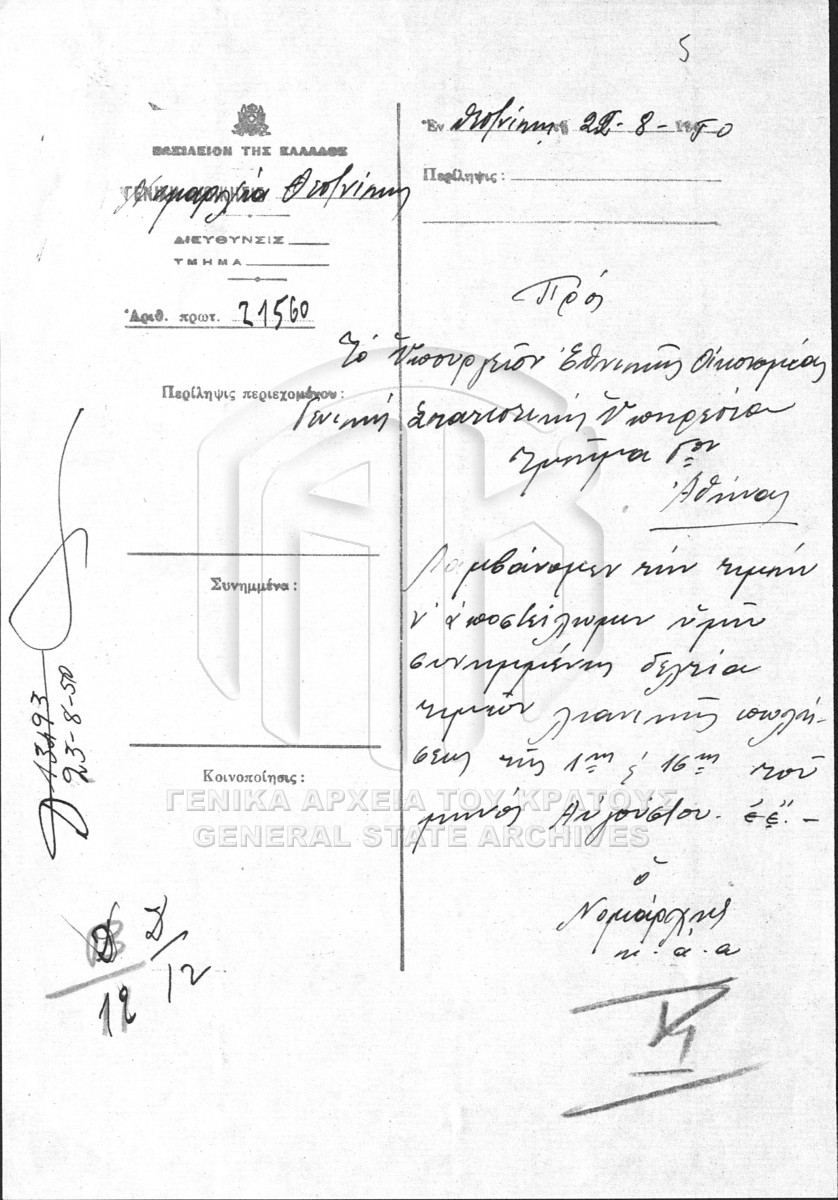 5
ΒΑΣΙΛΕΙΟΝ ΤΗΣ ΕΛΛΑΔΟΣ
Νομαρχία Θεσ/νίκης
ΔΙΕΥΘΥΝΣΙΣ
ΤΜΗΜΑ
Ἀριθ. πρωτ. 21560
Ἐν Θεσ/νίκῃ τῇ 22-8-1950
Περίληψις:
Πρός
Τό Ὑπουργεῖον Ἐθνικῆς Οἰκονομίας
Γενική Στατιστική Ὑπηρεσία
Τμῆμα
Ἀθήνας
Περίληψις περιεχομένου:
Συνημμένα:
Κοινοποίησις:
Λαμβάνομεν τήν τιμήν
ν' ἀποστείλωμεν ὑμῖν
συνημμένως δελτία
τιμῶν λιανικῆς πωλή-
σεως τῆς 1ης & 16ης τοῦ
μηνός Αὐγούστου. ἐ.ἔ.-
ὁ
Νομάρχης
κ.ἀ.α
13493
23-8-50
12
12
ΓΕΝΙΚΑ ΑΡΧΕΙΑ ΤΟΥ ΚΡΑΤΟΥΣ
GENERAL STATE ARCHIVES